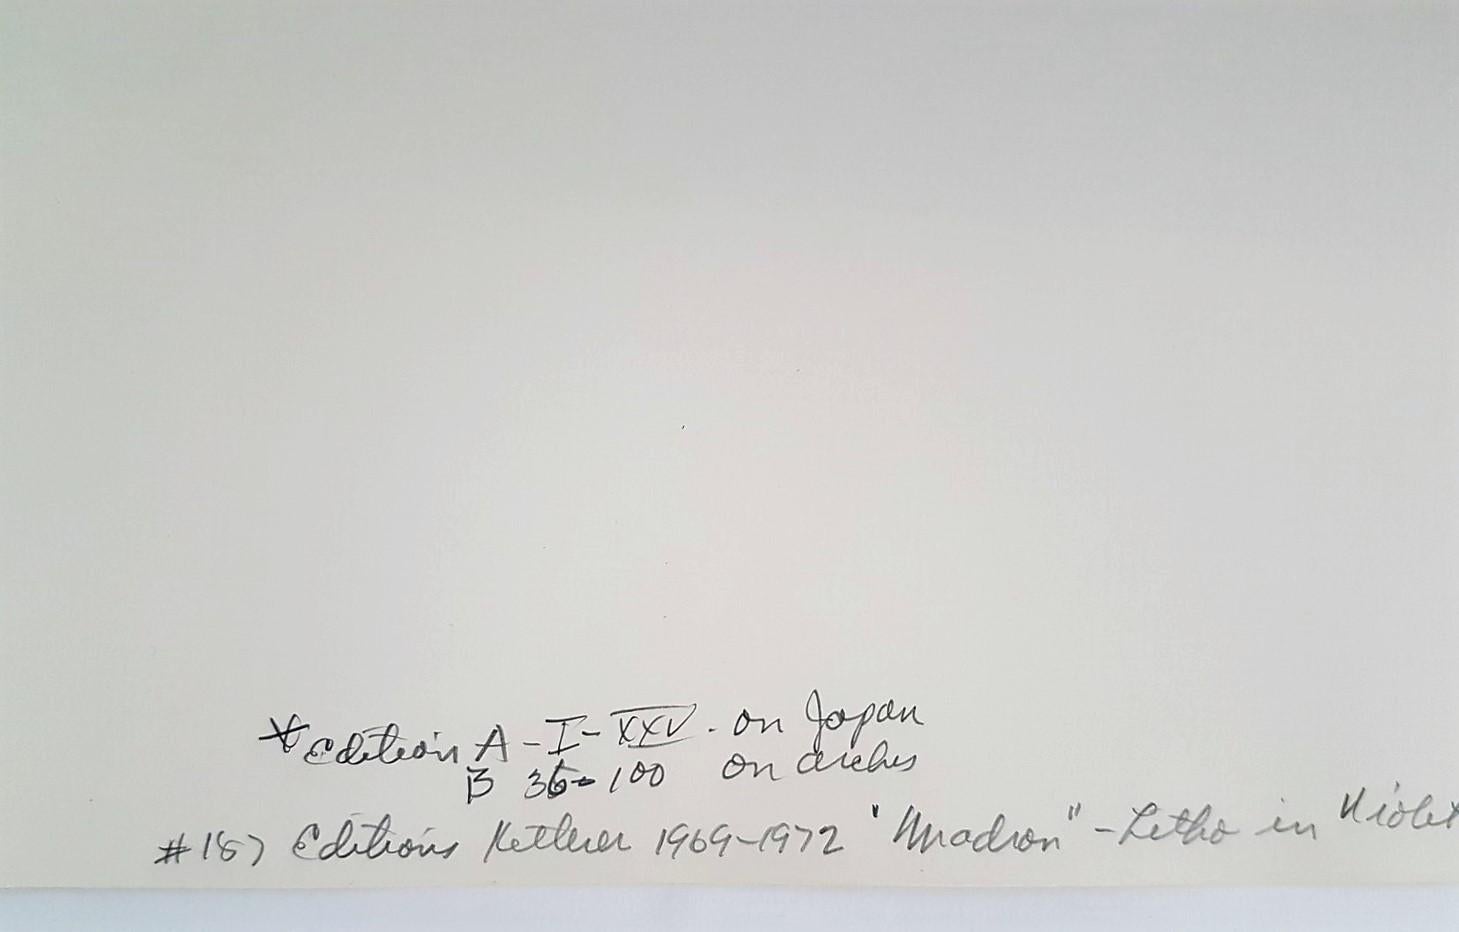 * Edition A - I - XXV. on Japan
B 36-100 on arches
#187 Editions Ketterer 1969-1972 "Madron" - Litho in Violet